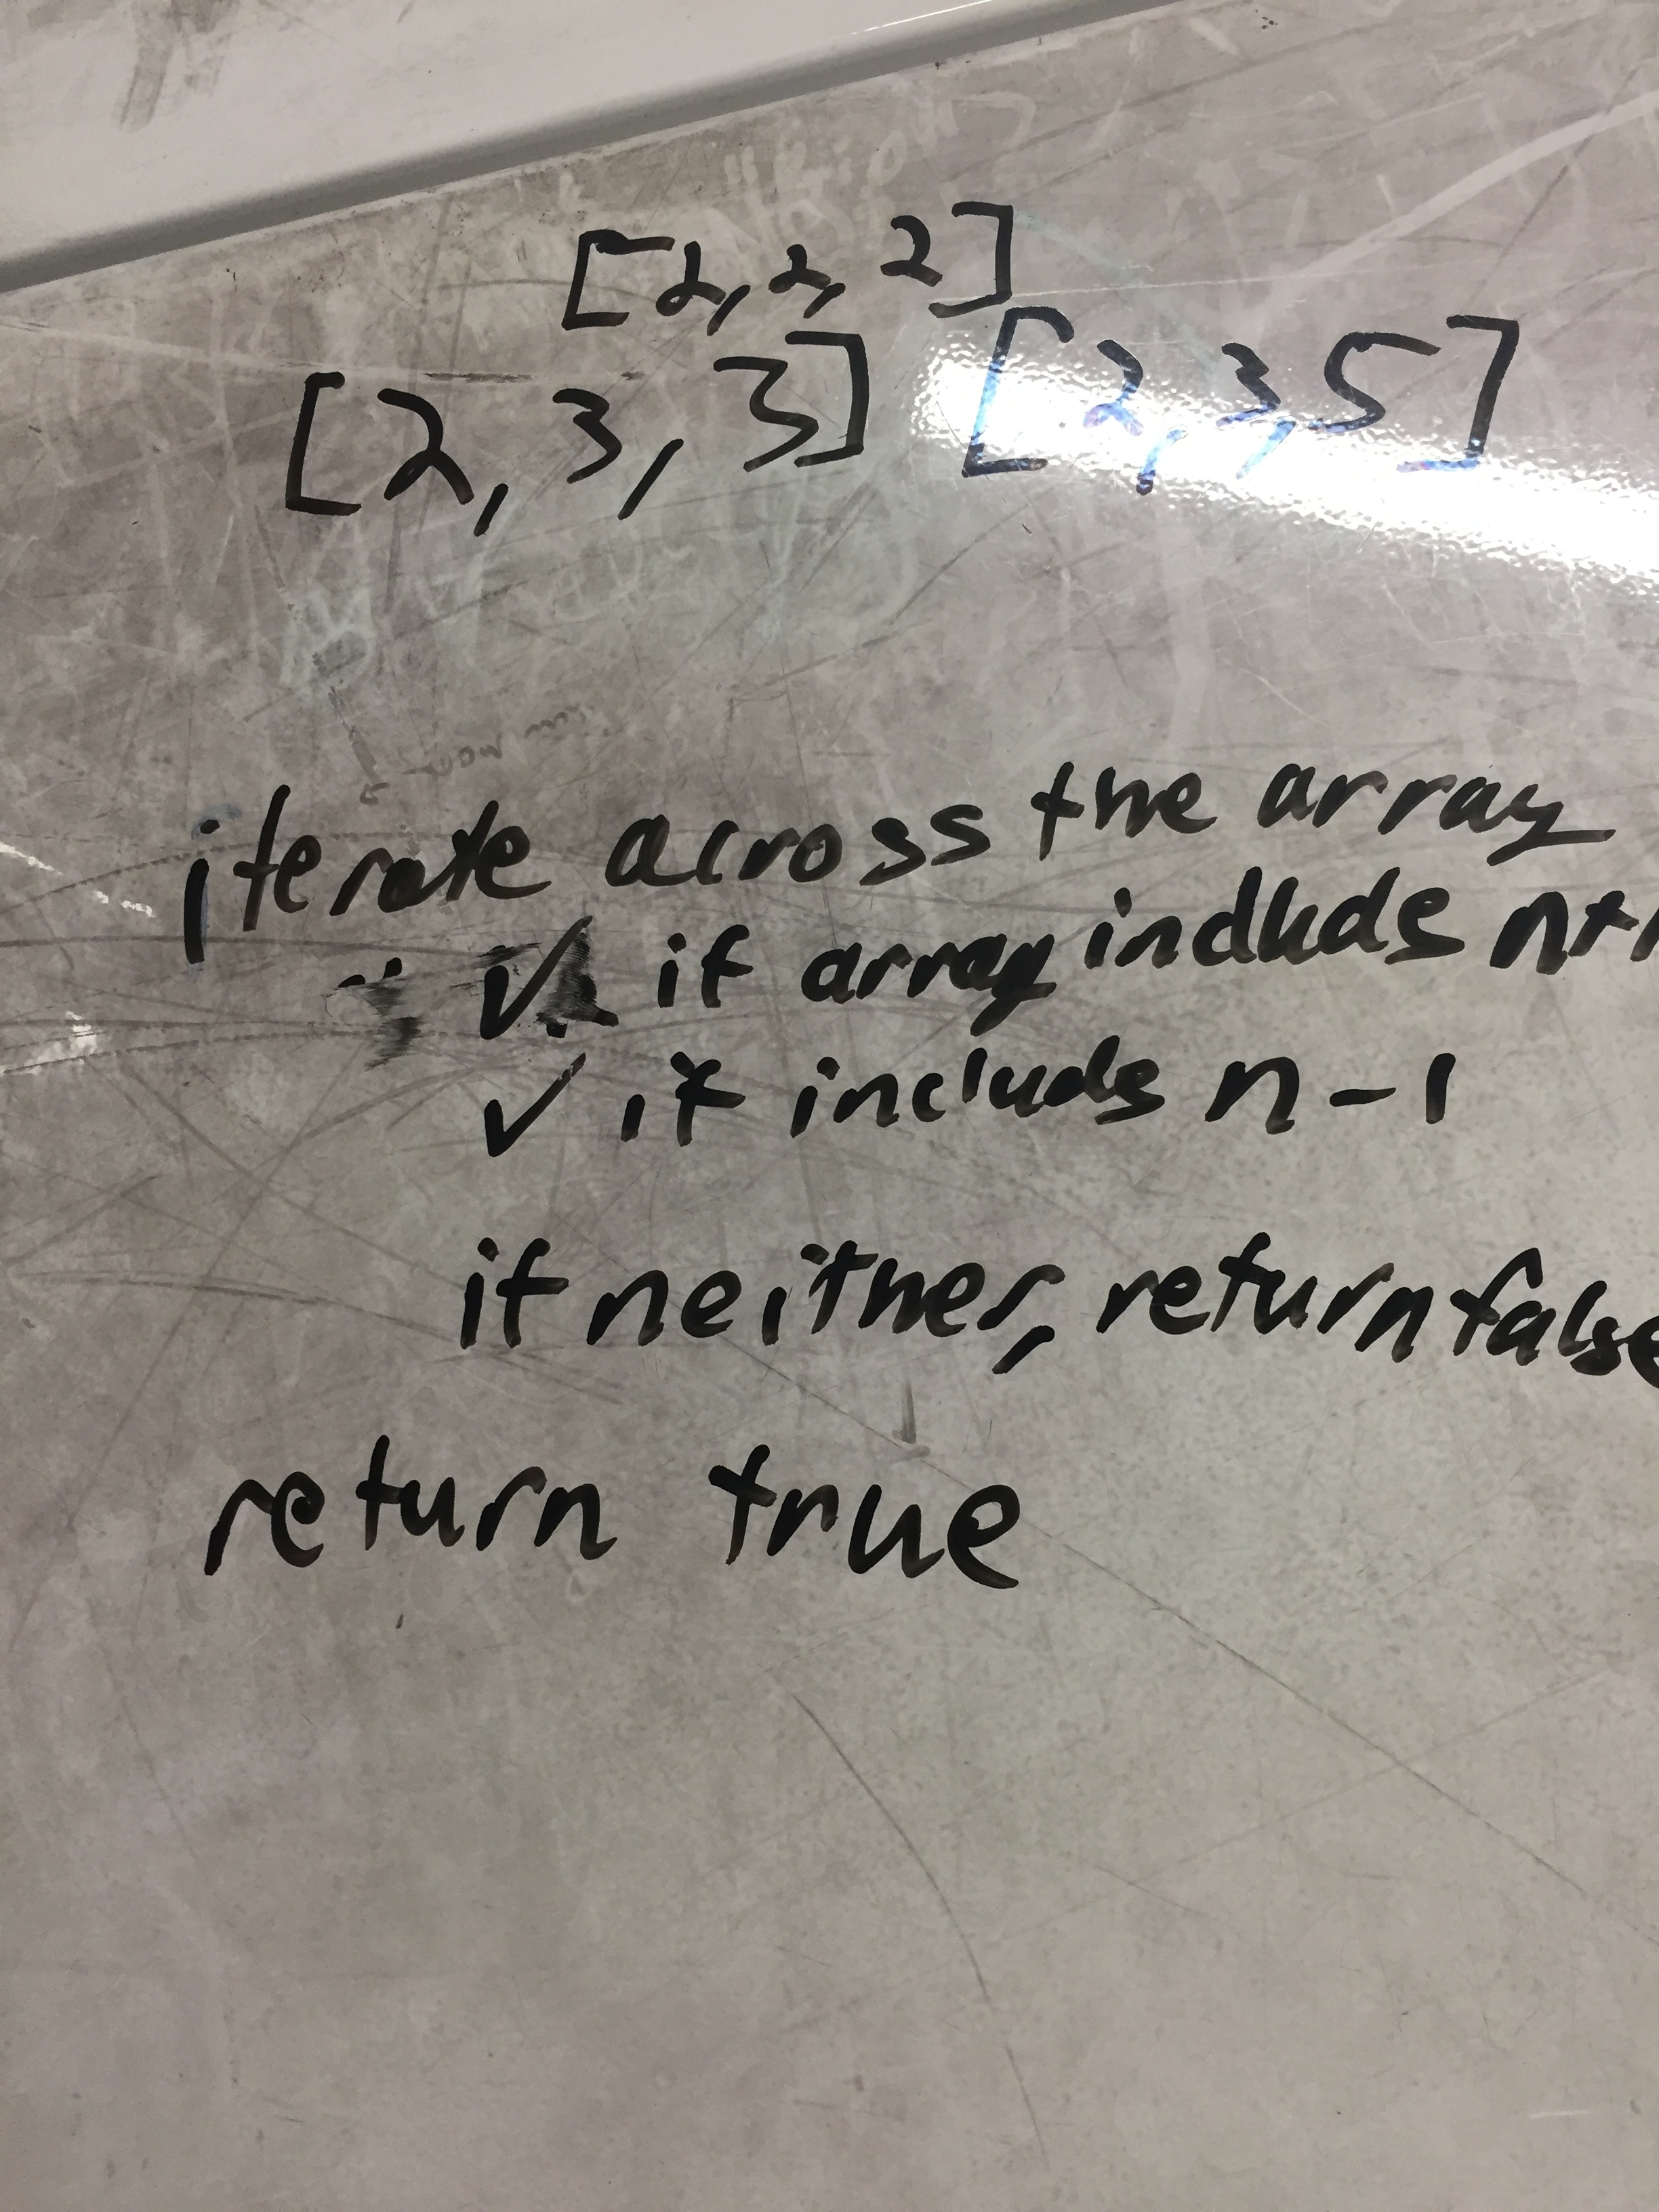 [2,2,2]
[2,3,3] [2,3,5]
iterate across the array
✓ if array includes n+1
✓ if includes n-1
if neither, return false
return true